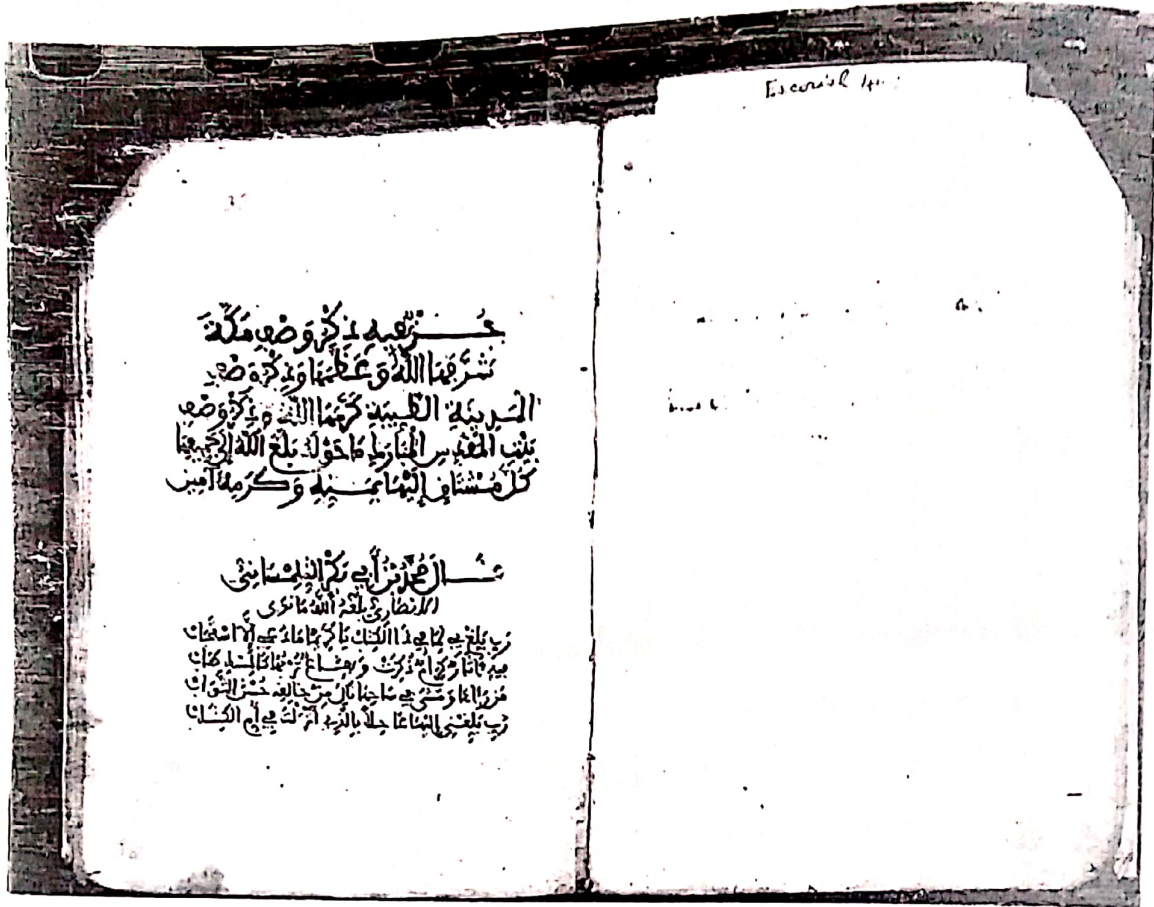 Escorial
جزء فيه ذكر وصف مكة
شرفها الله وعظمها وذكر وصف
المدينة الطيبة كرمها الله وذكر وصف
بيت المقدس المبارك ما حوله بلغ الله إلى جميعها
كل مشتاق إليها بمنه وكرمه آمين
قال محمد بن أبي بكر التلمساني
الانصاري بلغه الله ما نوى
رب بلغني لما في ذا الكتاب
فيه آثار كرام ذكرت وبقاع تربها كالمسك طاب
من رآها ومشى في ساحها نال من خالقه حسن الثواب
رب بلغني إليها عاجلا بالذي أنزلته في أم الكتاب